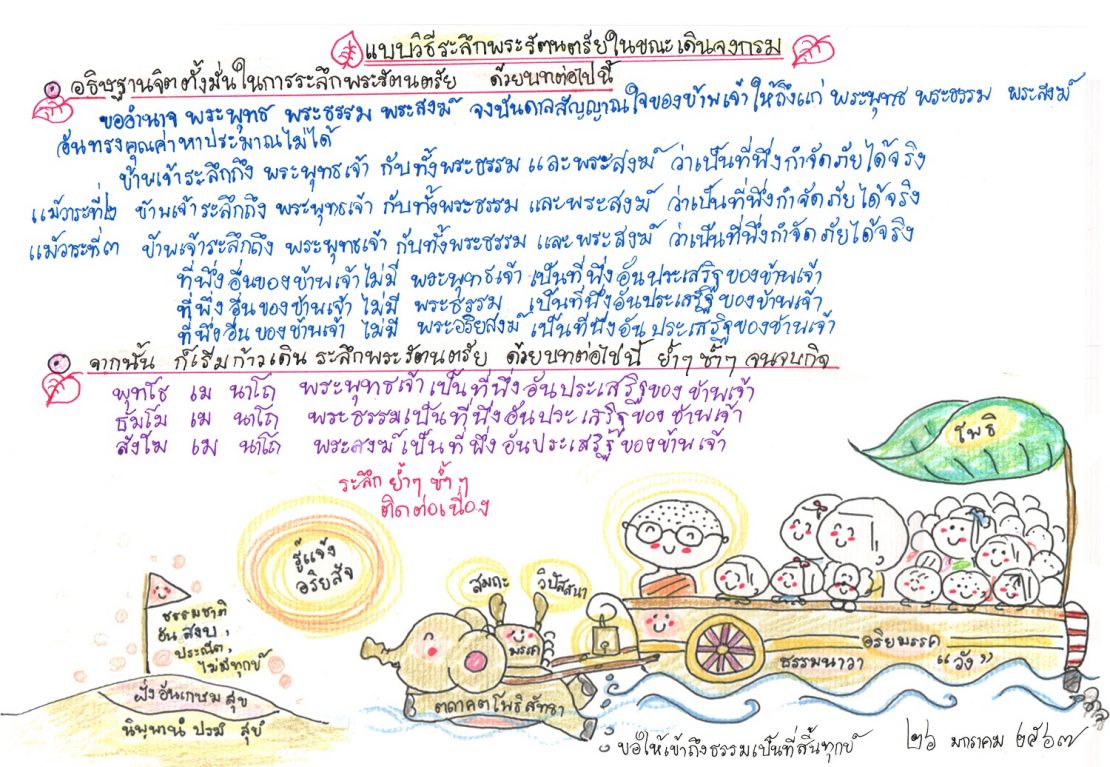 แบบวิธีระลึกพระรัตนตรัยในขณะเดินจงกรม
อธิษฐานจิตตั้งมั่นในการระลึกพระรัตนตรัย ด้วยบทต่อไปนี้
ขออำนาจ พระพุทธ พระธรรม พระสงฆ์ จงบันดาลสัญญาณใจของข้าพเจ้าให้ถึงแก่ พระพุทธ พระธรรม พระสงฆ์
อันทรงคุณค่าหาประมาณไม่ได้
ข้าพเจ้าระลึกถึง พระพุทธเจ้า กับทั้งพระธรรม และพระสงฆ์ ว่าเป็นที่พึ่งกำจัดภัยได้จริง
แม้วาระที่๒ ข้าพเจ้าระลึกถึง พระพุทธเจ้า กับทั้งพระธรรม และพระสงฆ์ ว่าเป็นที่พึ่งกำจัดภัยได้จริง
แม้วาระที่๓ ข้าพเจ้าระลึกถึง พระพุทธเจ้า กับทั้งพระธรรม และพระสงฆ์ ว่าเป็นที่พึ่งกำจัดภัยได้จริง
ที่พึ่งอื่นของข้าพเจ้าไม่มี พระพุทธเจ้า เป็นที่พึ่งอันประเสริฐของข้าพเจ้า
ที่พึ่งอื่นของข้าพเจ้า ไม่มี พระธรรม เป็นที่พึ่งอันประเสริฐของข้าพเจ้า
ที่พึ่งอื่นของข้าพเจ้า ไม่มี พระอริยสงฆ์ เป็นที่พึ่งอันประเสริฐของข้าพเจ้า
จากนั้น ก็เริ่มก้าวเดิน ระลึกพระรัตนตรัย ด้วยบทต่อไปนี้ ย้ำๆ ซ้ำๆ จนจบกิจ
พุทโธ เม นาโถ พระพุทธเจ้าเป็นที่พึ่งอันประเสริฐของข้าพเจ้า
ธัมโม เม นาโถ พระธรรมเป็นที่พึ่งอันประเสริฐของข้าพเจ้า
สังโฆ เม นาโถ พระสงฆ์เป็นที่พึ่งอันประเสริฐของข้าพเจ้า
ระลึก ย้ำๆ ซ้ำๆ
ติดต่อเนื่อง
โพธิ
รู้แจ้ง
อริยสัจ
สมถะ
วิปัสสนา
มรรค
ธรรมชาติ
อันสงบ,
ประณีต,
ไม่มีทุกข์
ฝั่งอันเกษมสุข
นิพฺพานํ ปรมํ สุขํ
ตถาคตโพธิสัทธา
อริยมรรค
ธรรมนาวา "วัง"
ขอให้เข้าถึงธรรมเป็นที่สิ้นทุกข์ ๒๖ มกราคม ๒๕๖๗